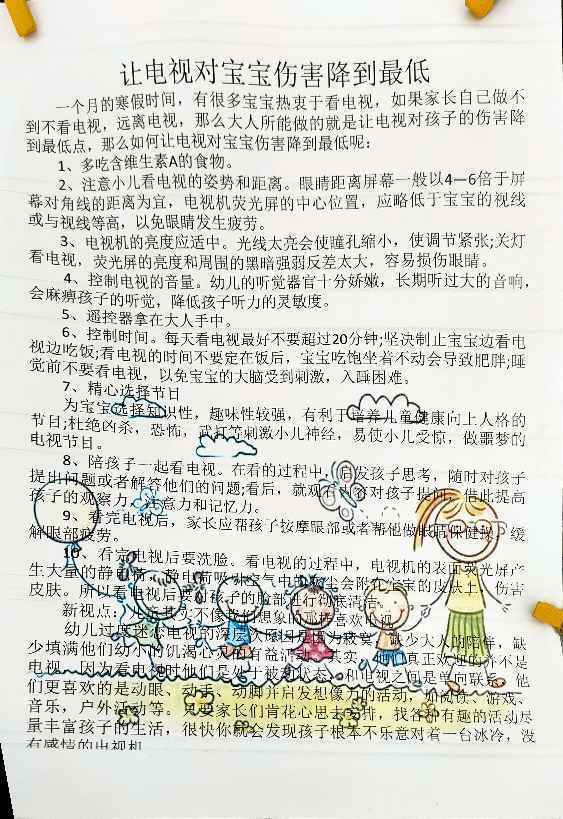 让电视对宝宝伤害降到最低
一个月的寒假时间，有很多宝宝热衷于看电视，如果家长自己做不
到不看电视，远离电视，那么大人所能做的就是让电视对孩子的伤害降
到最低点，那么如何让电视对宝宝伤害降到最低呢：
1、多吃含维生素A的食物。
2、注意小儿看电视的姿势和距离。眼睛距离屏幕一般以4—6倍于屏
幕对角线的距离为宜，电视机荧光屏的中心位置，应略低于宝宝的视线
或与视线等高，以免眼睛发生疲劳。
3、电视机的亮度应适中。光线太亮会使瞳孔缩小，使调节紧张;关灯
看电视，荧光屏的亮度和周围的黑暗强弱反差太大，容易损伤眼睛。
4、控制电视的音量。幼儿的听觉器官十分娇嫩，长期听过大的音响，
会麻痹孩子的听觉，降低孩子听力的灵敏度。
5、遥控器拿在大人手中。
6、控制时间。每天看电视最好不要超过20分钟;坚决制止宝宝边看电
视边吃饭;看电视的时间不要定在饭后，宝宝吃饱坐着不动会导致肥胖;睡
觉前不要看电视，以免宝宝的大脑受到刺激，入睡困难。
7、精心选择节目
为宝宝选择知识性，趣味性较强，有利于培养儿童健康向上人格的
节目;杜绝凶杀，恐怖，武打等刺激小儿神经，易使小儿受惊，做噩梦的
电视节目。
8、陪孩子一起看电视。在看的过程中，启发孩子思考，随时对孩子
提出问题或者解答他们的问题;看后，就观看内容对孩子提问，借此提高
孩子的观察力，注意力和记忆力。
9、看完电视后，家长应帮孩子按摩眼部或者帮他做眼保健操，缓
解眼部疲劳。
10、看完电视后要洗脸。看电视的过程中，电视机的表面荧光屏产
生大量的静电荷，静电荷吸引空气中的灰尘会附在宝宝的皮肤上，伤害
皮肤。所以看电视后要对孩子的脸部进行彻底清洁。
新视点：不像我们想象的那样喜欢电视
幼儿过度迷恋电视的深层次原因是因为寂寞，缺少大人的陪伴，缺
少填满他们幼小的饥渴心灵的有益活动。其实，他们真正欢迎的并不是
电视，因为看电视时他们是处于被动状态，和电视之间是单向联系，他
们更喜欢的是动眼、动手、动脚并启发想像力的活动，如阅读、游戏、
音乐，户外活动等。只要家长们肯花心思去安排，找各种有趣的活动尽
量丰富孩子的生活，很快你就会发现孩子根本不乐意对着一台冰冷，没
有感情的电视机